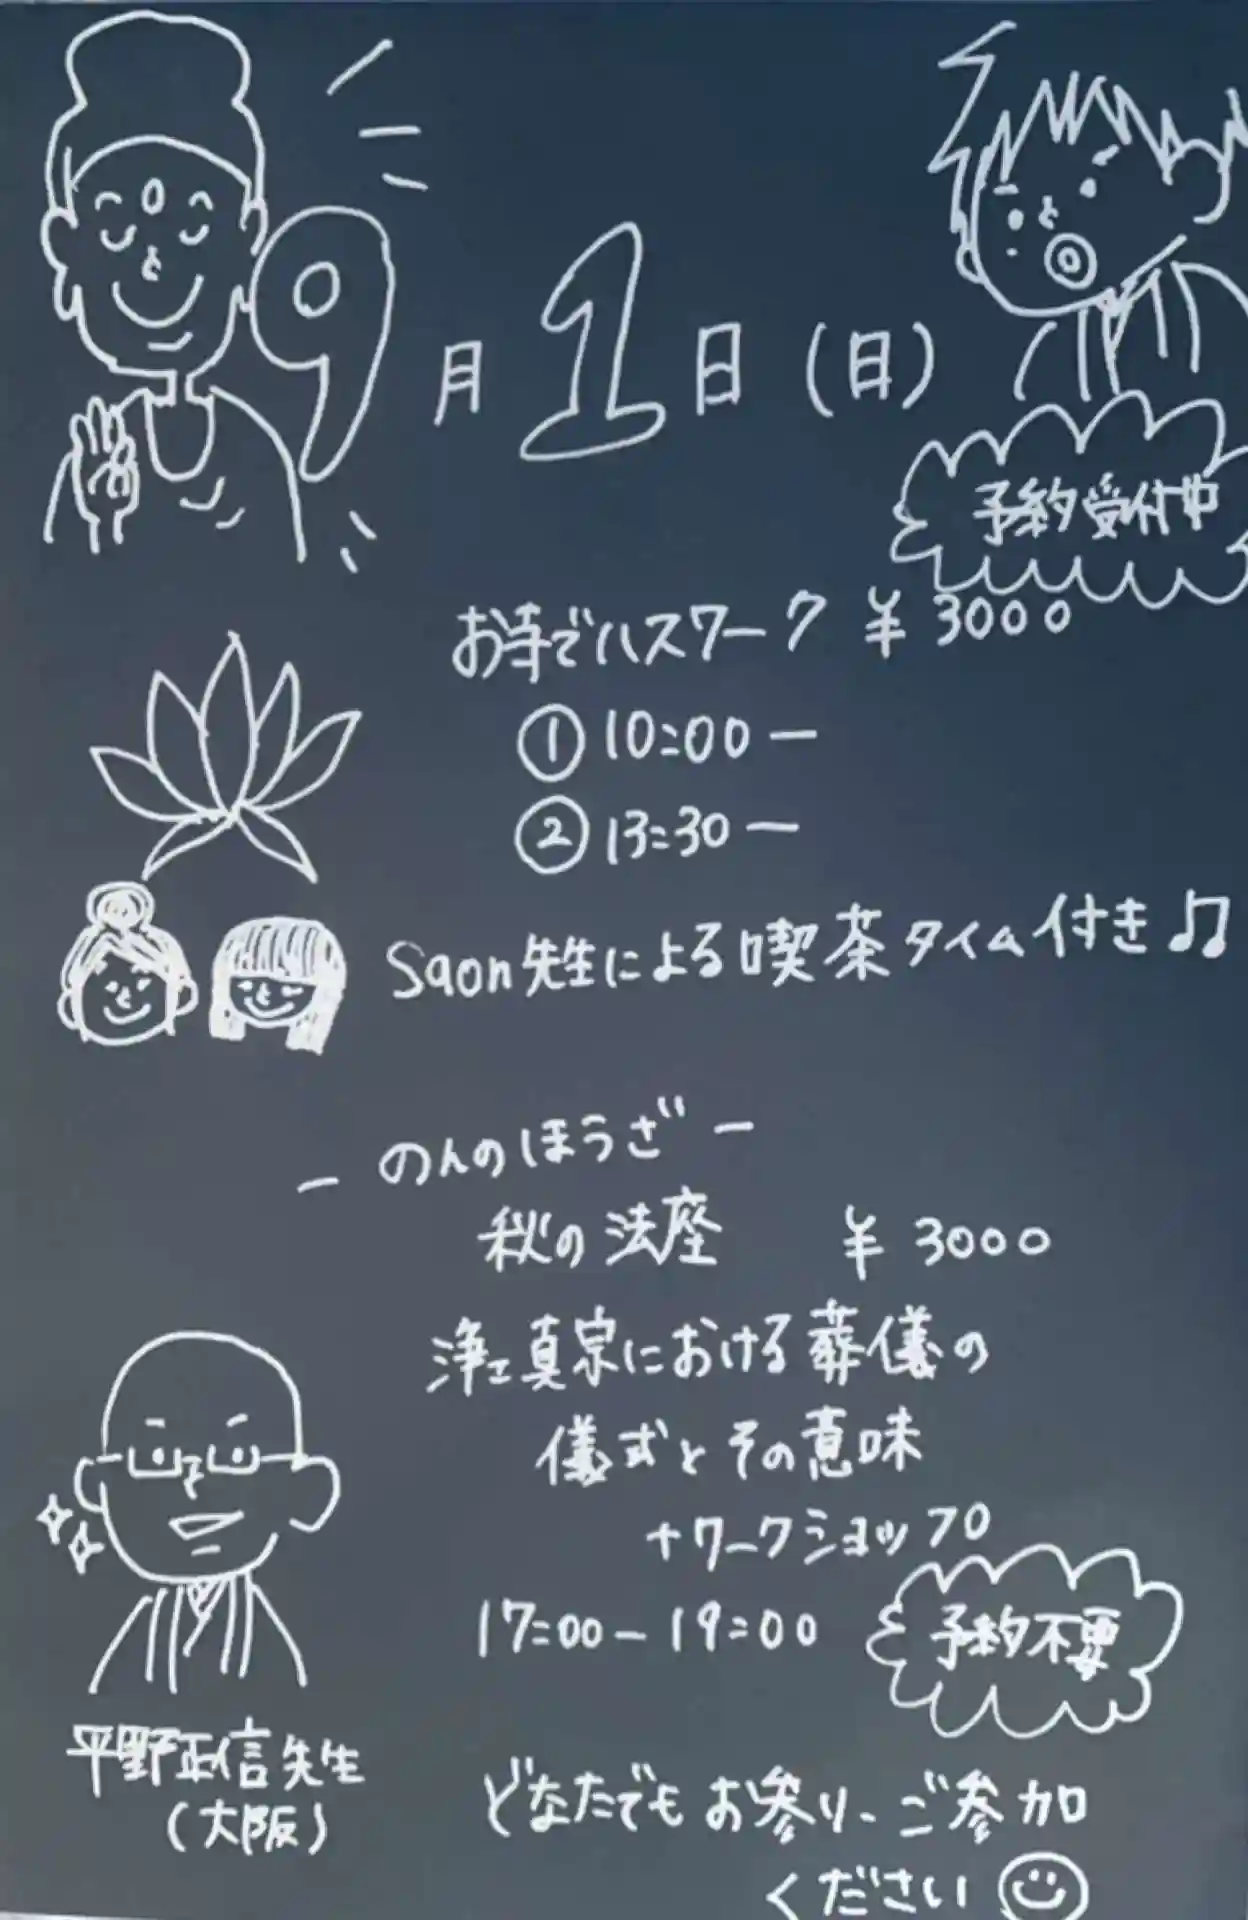 9月1日(日)
予約受付中
お寺でハスワーク ¥3000
① 10:00ー
② 13:30ー
Saon先生による喫茶タイム付き♫
ーのんのほうざー
秋の法座 ¥3000
浄土真宗における葬儀の
儀式とその意味
+ワークショップ
17:00ー19:00
予約不要
平野正信先生
(大阪)
どなたでもお参り、ご参加
ください